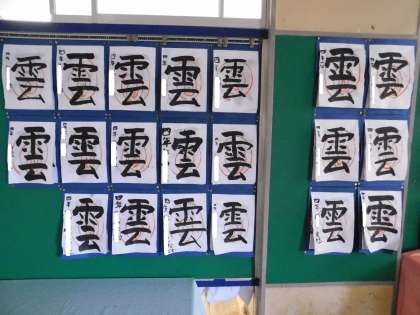 雲 雲 雲 雲 雲
雲 雲 雲 雲 雲
雲 雲 雲 雲
雲 雲
雲 雲
雲 雲